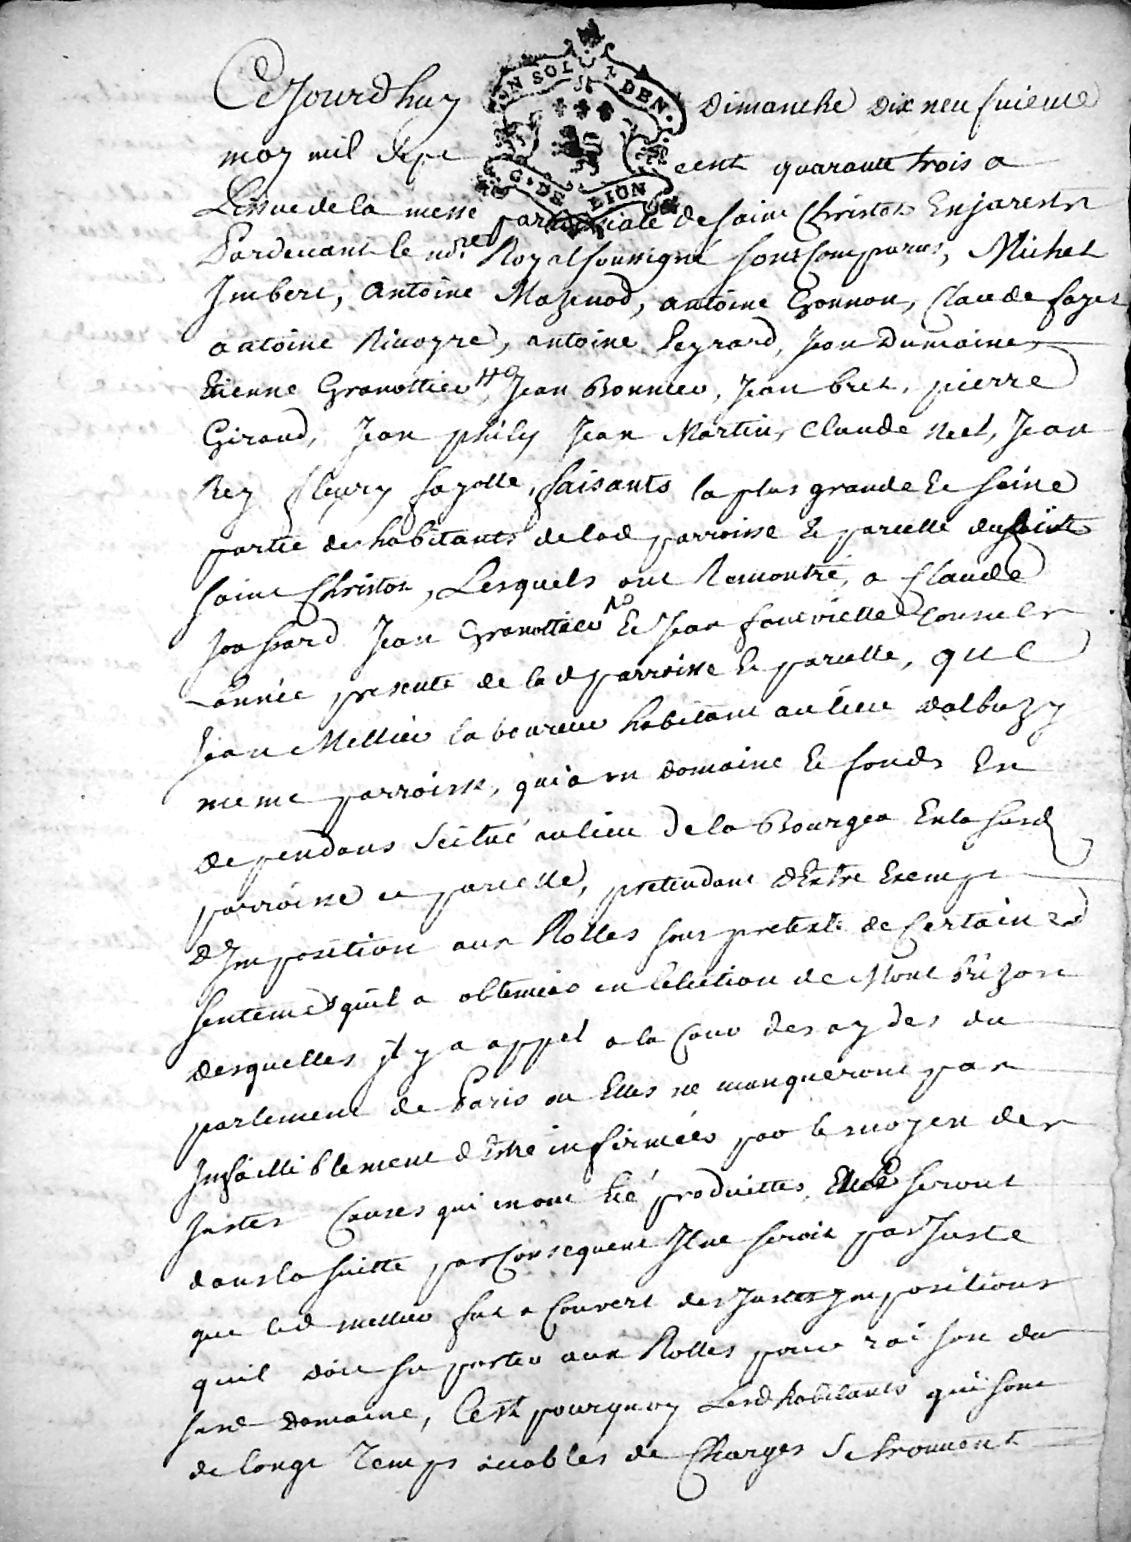 Cejourdhuy dimanche dix neufvieme
may mil sept cent quarante trois a
Lissue de la messe parroissiale de saint Christos Enjarest
Pardevant le nore Royal soussigné sont Comparus, Michel
Jmbert, antoine Mazenod, antoine Gonnon, Claude fayet
antoine Rivoyre, antoine Peyrard, Jean Dumaine
Etienne Granottier, Jean Bonnier, Jean bret, pierre
Giraud, Jean phily Jean Martin, Claude neel, Jean
Rey fleury fayolle, faisants la plus grande Et saine
partie des habitants de lad parroisse Et parcelle du
saint Christos, Lesquels ont Remontré, a Claude
Joassard Jean Granottier Et Jean fontvielle Consuls
Lannée presente de lad parroisse Et parcelle, que
Jean Mellier laboureur habitant au lieu dalbuzy
meme parroisse, qui a un domaine Et fonds En
dependans scitué au lieu de la Bourgea En la susd
parroisse et parcelle, pretendant dEstre Exempt
dJmposition aux Rolles sous pretexte de Certaines
sentences quil a obtenües en lelection de Montbrizon
desquelles jl y a appel a la Cour des aydes du
parlement de Paris ou Elles ne manqueront pas
Jnfailliblement dEstre infirmées par le moyen des
justes Causes qui y ont Eté produittes, Et le seront
dans la suitte par Consequent Jl ne seroit pas Juste
que led mellier fut a Couvert des Justes Jmpositions
quil doit suporter aux Rolles pour raison du
susd domaine, Cest pourquoy Lesd habitants qui sont
de longt Temps acables de Charges se trouvent